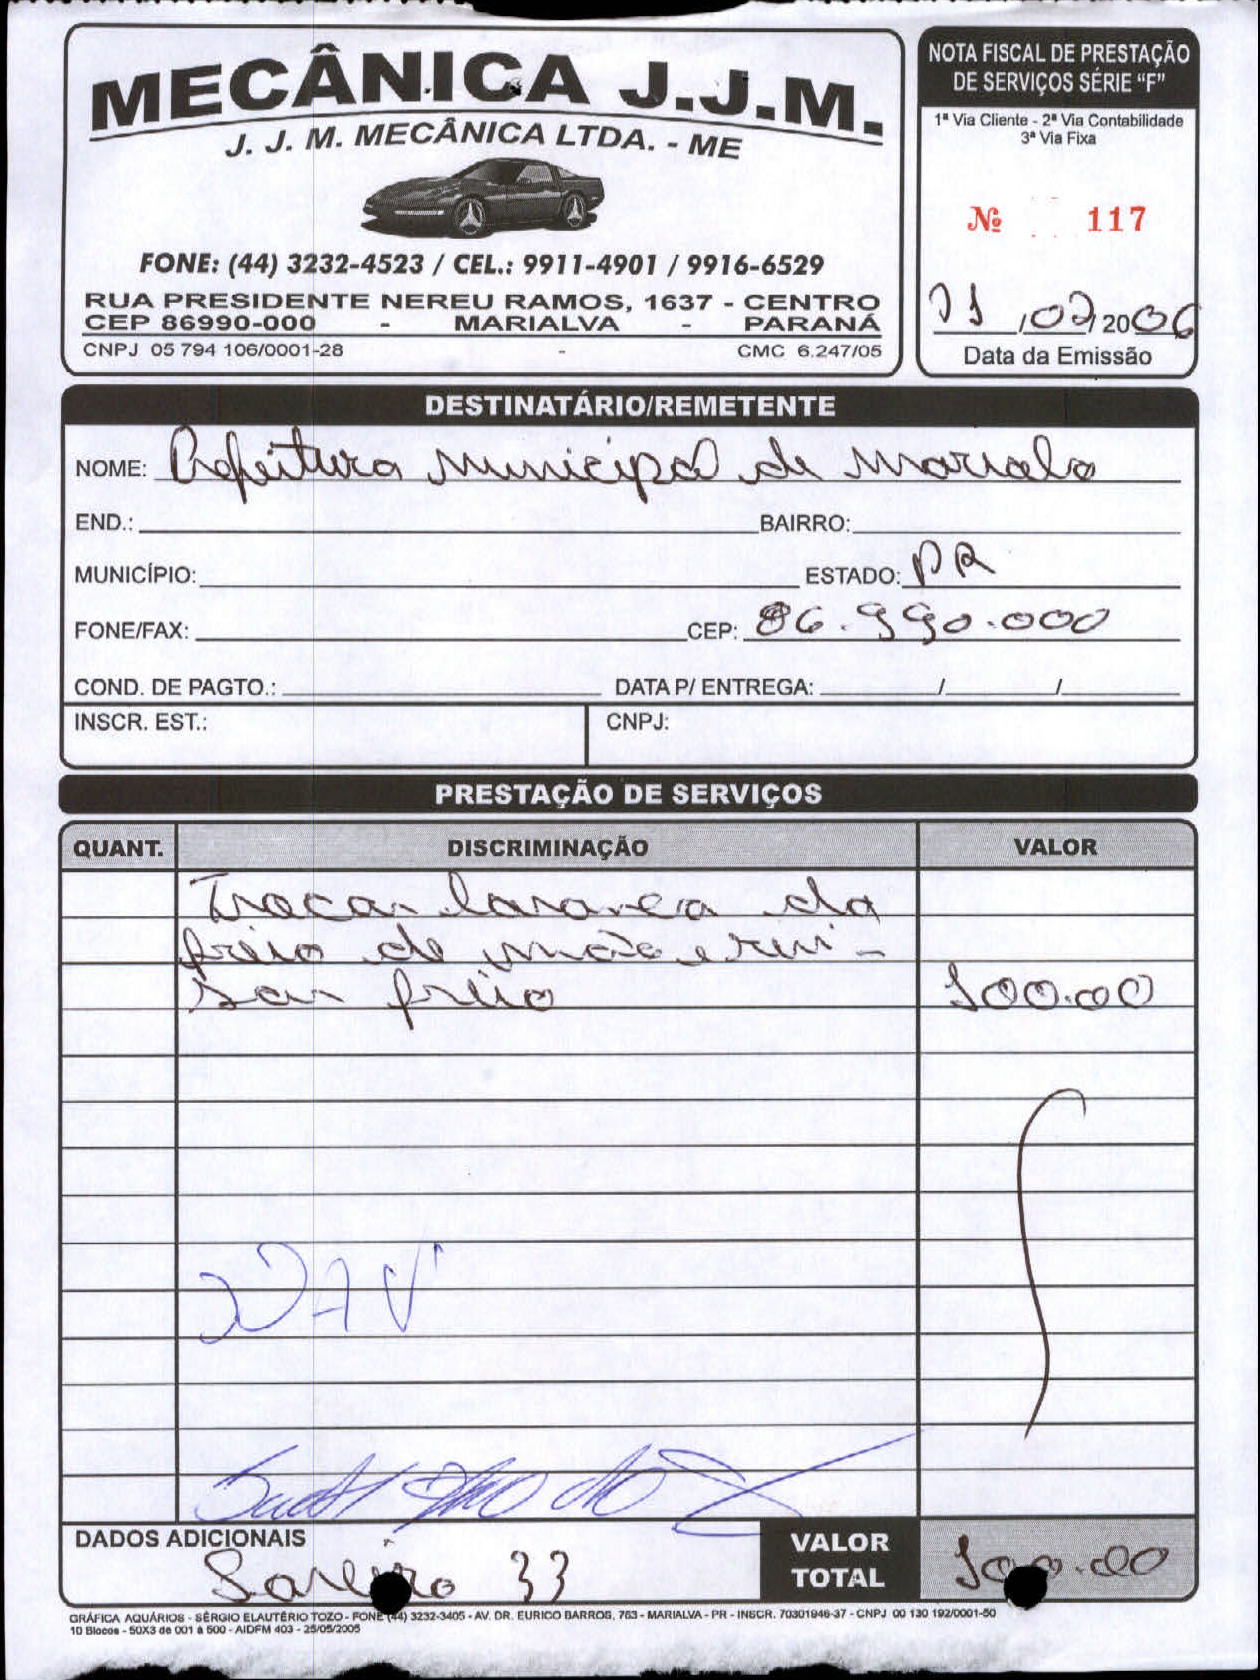 MECÂNICA J.J.M.
J. J. M. MECÂNICA LTDA. - ME
FONE: (44) 3232-4523 / CEL.: 9911-4901 / 9916-6529
RUA PRESIDENTE NEREU RAMOS, 1637 - CENTRO
CEP 86990-000 - MARIALVA - PARANÁ
CNPJ 05 794 106/0001-28 - CMC 6.247/05
NOTA FISCAL DE PRESTAÇÃO
DE SERVIÇOS SÉRIE “F”
1ª Via Cliente - 2ª Via Contabilidade
3ª Via Fixa
Nº 117
/02/2006
Data da Emissão
DESTINATÁRIO/REMETENTE
NOME: Prefeitura Municipal de
END.: BAIRRO:
MUNICÍPIO: ESTADO: PR
FONE/FAX: CEP: 86.990.000
COND. DE PAGTO.: DATA P/ ENTREGA: / /
INSCR. EST.: CNPJ:
PRESTAÇÃO DE SERVIÇOS
QUANT. DISCRIMINAÇÃO VALOR
Trocar da
freio de mão e rivi-
sar freio 100.00
DADOS ADICIONAIS
33
VALOR
TOTAL 100.00
GRÁFICA AQUÁRIOS - SÉRGIO ELAUTÉRIO TOZO - FONE (44) 3232-3405 - AV. DR. EURICO BARROS, 763 - MARIALVA - PR - INSCR. 70301946-37 - CNPJ 00 130 192/0001-50
10 Blocos - 50X3 de 001 à 500 - AIDFM 403 - 25/05/2005